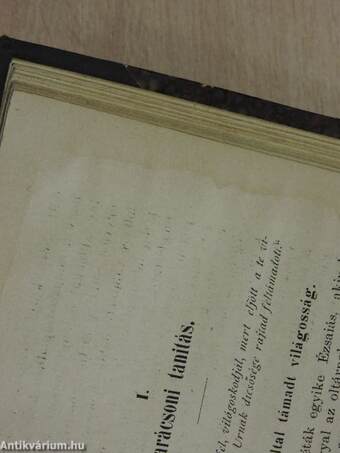 I.
arácsoni tanítás.
el, világoskodjál, mert eljött a te vi-
Urnak dicsősége rajtad feltámadott."
ltal támadt világosság.
éták egyike Ézsaiás, aki
az oltárn
Antikvárium.hu